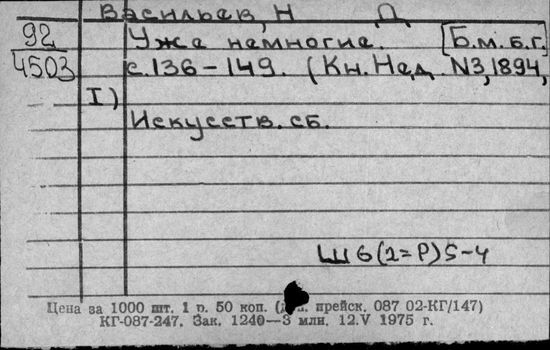 Васильев, Н Д
92 Уже немногие. [Б.м. б.г.
4503 с. 136-149. (Кн. Нед. N3, 1894,
I)
Искусств. сб.
Ш6(2=Р)5-4
Цена за 1000 шт. 1 р. 50 коп. ( прейск. 087 02-КГ/147)
КГ-087-247. Зак. 1240—3 млн. 12.V 1975 г.